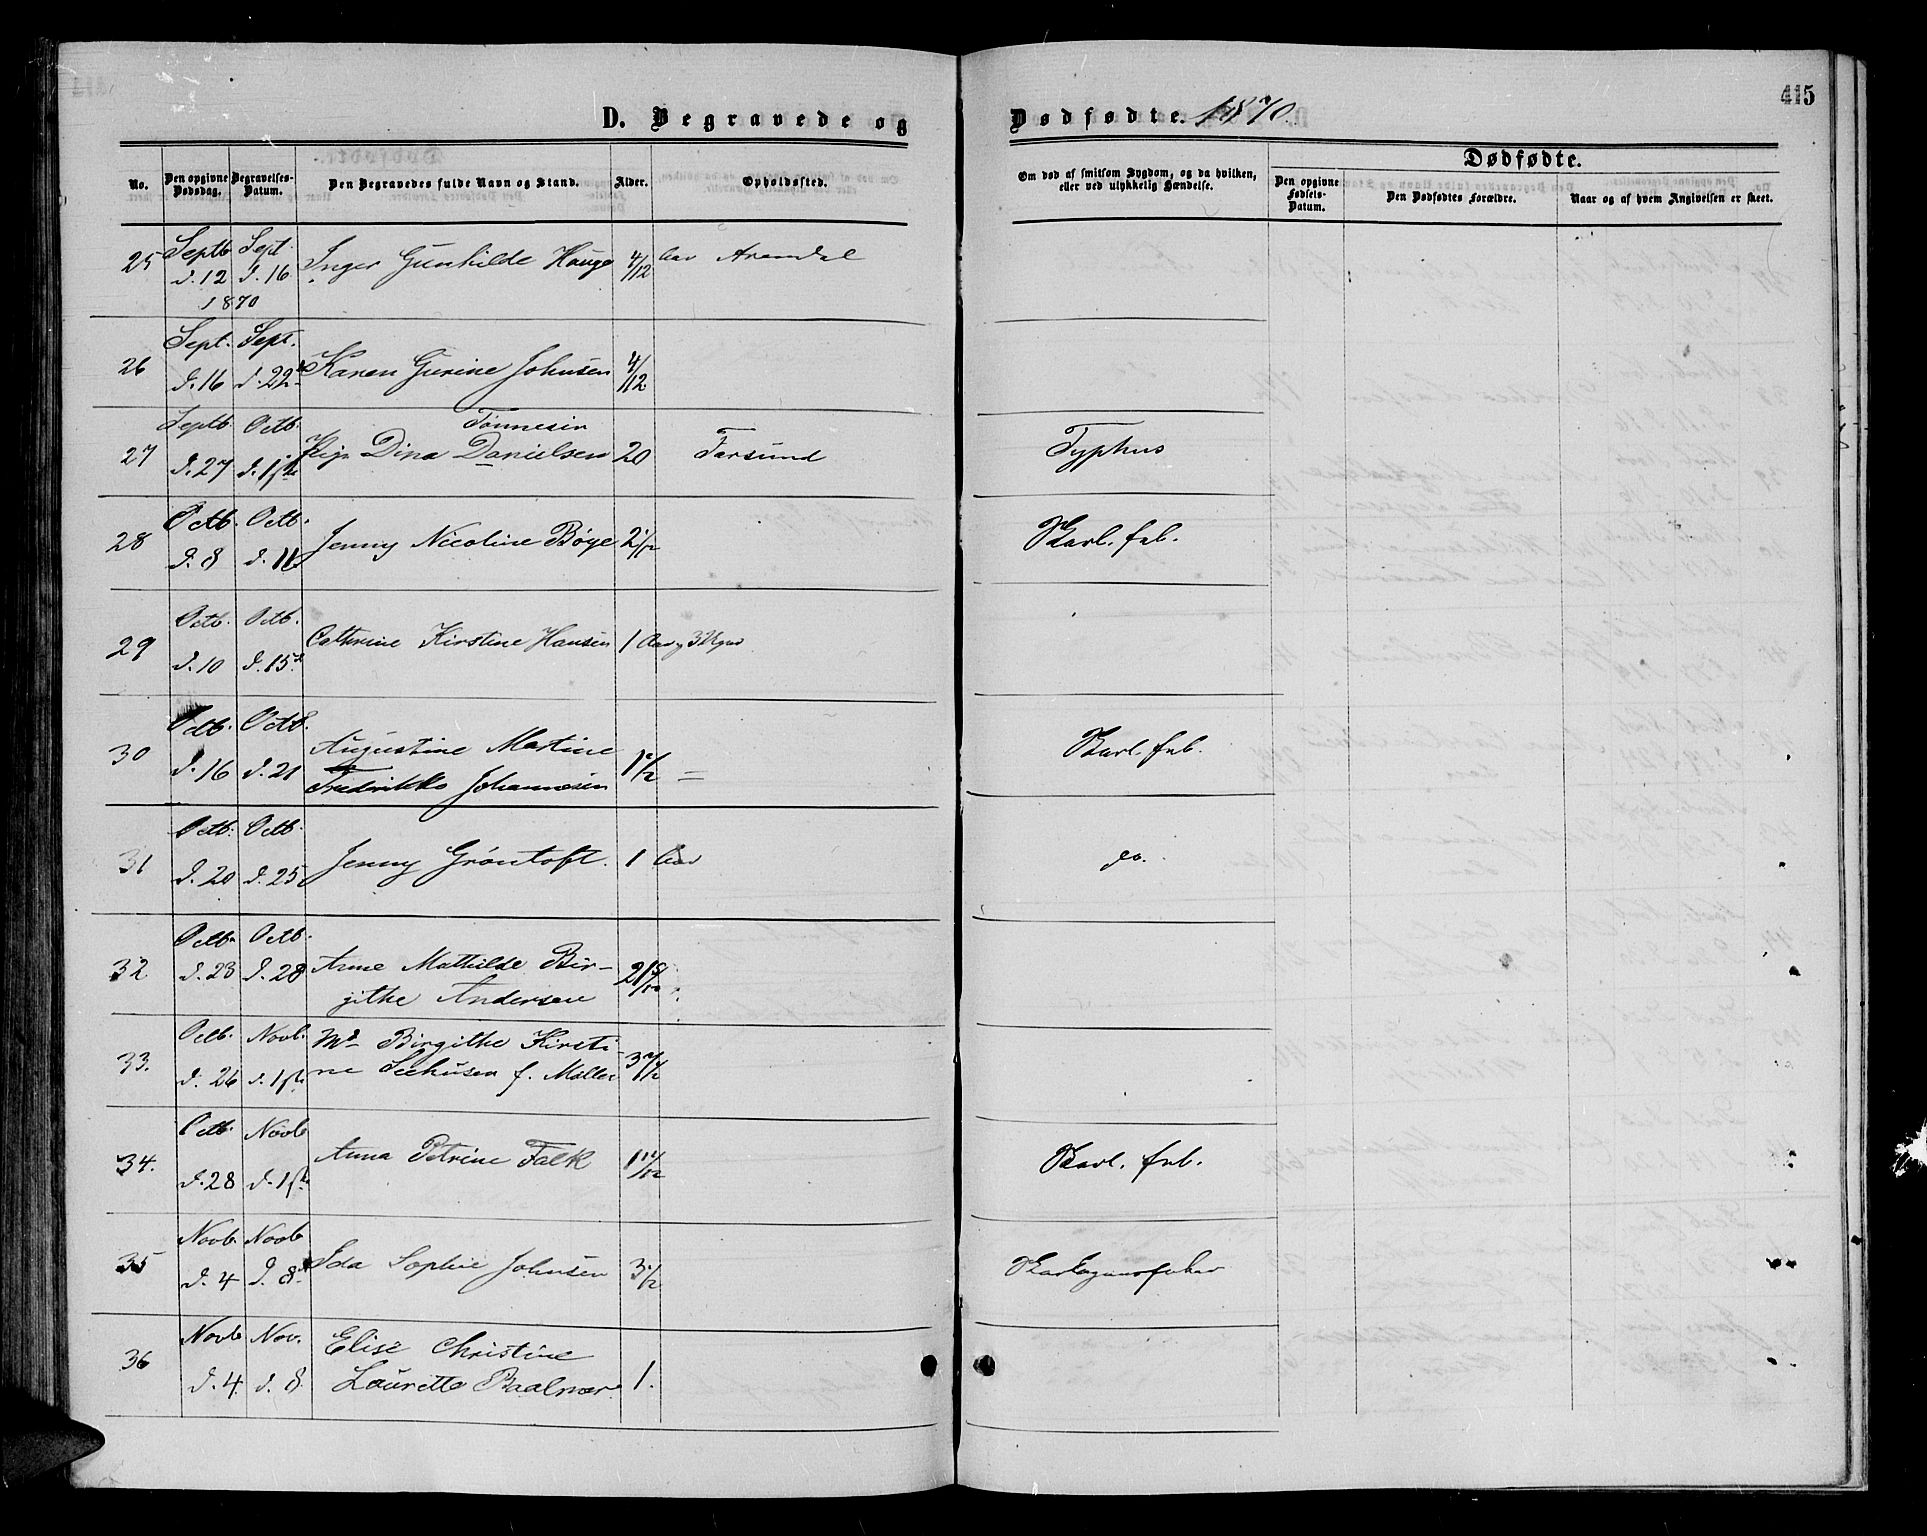 D. Begravede og Dødfødte. 1870.
415
No.
Den opgivne Dødsdag.
Begravelses-Datum.
Den Begravedes fulde Navn og Stand.
Alder.
Opholdssted.
Om død af smitsom Sygdom, og da hvilken, eller ved ulykkelig Hændelse.
Dødfødte.
Den opgivne Fødsels-Datum.
Den Dødfødtes Forældre.
Naar og af hvem Angivelsen er skeet.
25 Septb. d. 12 Sept. d. 16 1870 Inger Gunhilde Hauge 4/12 Aar Arendal
26 Sept. d. 16 Sept. d. 22 Karen Gurine Johnsen 4/12
27 Septb. d. 27 Octb. d. 1ste Pige Dina Danielsen Tönnesen 20 Farsund Typhus
28 Octb. d. 8 Octb. d. 11 Jenny Nicoline Bøye 2 1/2 Skarl. feb.
29 Octb. d. 10 Octb. d. 15 Cathrine Kirstine Hansen 1 Aar 3 Uger
30 Octb. d. 16 Octb. d. 21 Augustine Martine
Fredrikke Johannesen 1 1/2 = Skarl. feb.
31 Octb. d. 20 Octb. d. 25 Jenny Gröntoft. 1 Aar do.
32 Octb. d. 23 Octb. d. 28 Anne Mathilde Bir-
githe Andersen
33. Octb. d. 26 Novb. d. 1ste Md Birgithe Kirsti-
ne Seehusen f. Møller 37 1/2
34. Octb. d. 28 Novb d. 1ste Anna Petrine Falk Skarl. feb.
35 Novb. d. 4 Novb d. 8 Ida Sophie Johnsen 3 1/2 Skarlagensfeber
36 Novb d. 4 Nov. d. 8 Elise Christine
Laurette Baalmer 1.